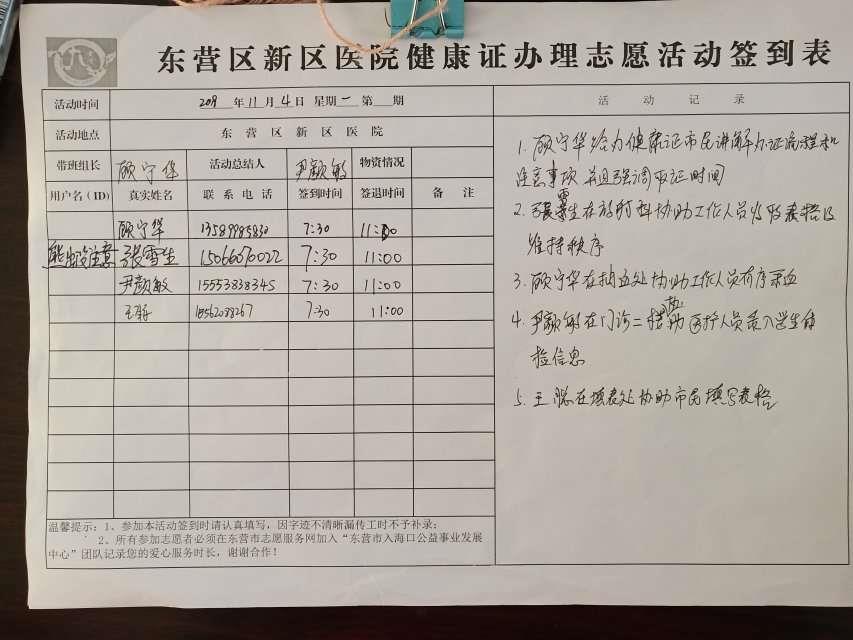 东营区新区医院健康证办理志愿活动签到表
活动时间 2019年11月4日 星期一 第 期
活动地点 东营区新区医院
带班组长 顾守华 活动总结人 尹颜敏 物资情况
用户名(ID) 真实姓名 联系电话 签到时间 签退时间 备注
顾守华 13589985830 7:30 11:00
熊出没注意 張雪生 15066070022 7:30 11:00
尹颜敏 15553838345 7:30 11:00
18562088267 7:30 11:00
温馨提示:1、参加本活动签到时请认真填写,因字迹不清晰漏传工时不予补录;
2、所有参加志愿者必须在东营市志愿服务网加入“东营市入海口公益事业发展
中心”团队记录您的爱心服务时长,谢谢合作!
活动记录
1. 顾守华给办健康证市民讲解办证流程和
注意事项 并且强调取证时间
2. 張雪生在放射科协助工作人员收取表格及
维持秩序
3. 顾守华在抽血处协助工作人员有序采血
4. 尹颜敏在门诊二楼帮助医护人员录入学生体
检信息
5. 王 在填表处协助市民填写表格